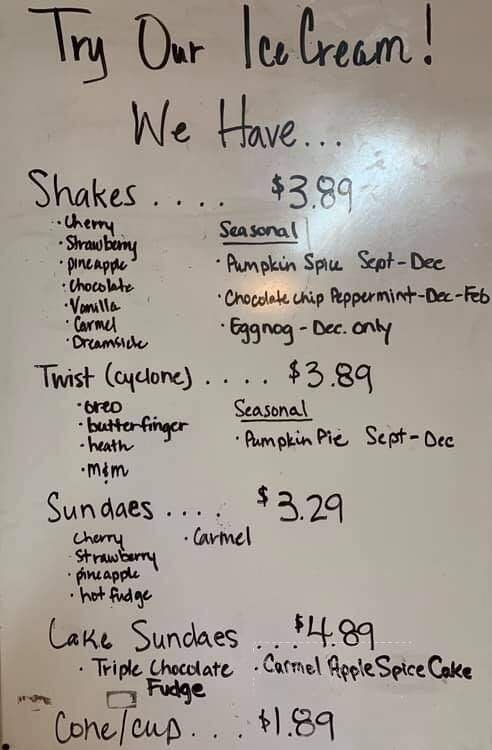 Try Our Ice Cream!
We Have...
Shakes .... $3.89
· Cherry
· Strawberry
· pineapple
· Chocolate
· Vanilla
· Carmel
· Dreamsicle
Seasonal
· Pumpkin Spice Sept-Dec
· Chocolate chip Peppermint-Dec-Feb
· Eggnog - Dec. only
Twist (cyclone) .... $3.89
· oreo
· butterfinger
· heath
· m&m
Seasonal
· Pumpkin Pie Sept-Dec
Sundaes .... $3.29
Cherry
· Strawberry
· pineapple
· hot fudge
· Carmel
Cake Sundaes ... $4.89
· Triple Chocolate
Fudge
· Carmel Apple Spice Cake
Cone/cup .... $1.89